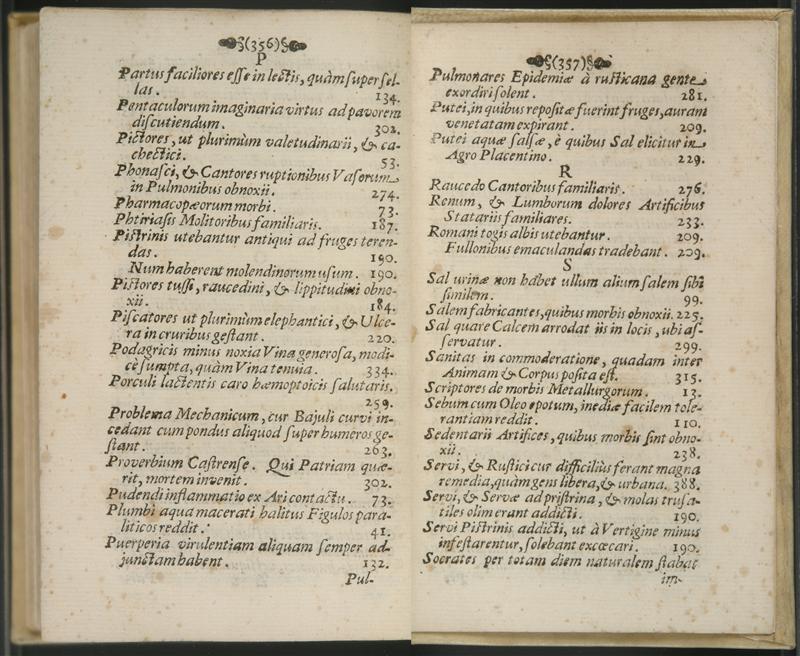 (356)
P
Partus faciliores eſſe in lectis, quàm ſuper ſel-
las. 134.
Pentaculorum imaginaria virtus ad pavorem
diſcutiendum. 302.
Pictores, ut plurimùm valetudinarii, & ca-
chectici. 53.
Phonaſci, & Cantores ruptionibus Vaſorum
in Pulmonibus obnoxii. 274.
Pharmacopæorum morbi. 73.
Phtiriaſis Molitoribus familiaris. 187.
Piſtrinis utebantur antiqui ad fruges teren-
das. 190.
Num haberent molendinorum uſum. 190.
Piſtores tuſſi, raucedini, & lippitudini obno-
xii. 184.
Piſcatores ut plurimum elephantici, & Ulce-
ra in cruribus geſtant. 220.
Podagricis minus noxia Vina generoſa, modi-
cè ſumpta, quàm Vina tenuia. 334.
Porculi lactentis caro hæmoptoicis ſalutaris.
259.
Problema Mechanicum, cur Bajuli curvi in-
cedant cum pondus aliquod ſuper humeros ge-
ſtant. 263.
Proverbium Caſtrenſe. Qui Patriam quæ-
rit, mortem invenit. 302.
Pudendi inflammatio ex Ari contactu. 73.
Plumbi aqua macerati halitus Figulos para-
liticos reddit. 41.
Puerperia virulentiam aliquam ſemper ad-
junctam habent. 132.
Pul-
(357)
Pulmonares Epidemiæ à ruſticana gente
exordiri ſolent. 281.
Putei, in quibus repoſitæ fuerint fruges, auram
venetatam expirant. 209.
Putei aquæ ſalſæ, è quibus Sal elicitur in
Agro Placentino. 229.
R
Raucedo Cantoribus familiaris. 276.
Renum, & Lumborum dolores Artificibus
Statariis familiares. 233.
Romani togis albis utebantur. 209.
Fullonibus emaculandas tradebant. 209.
S
Sal urinæ non habet ullum alium ſalem ſibi
ſimilem. 99.
Salem fabricantes, quibus morbis obnoxii. 225.
Sal quare Calcem arrodat iis in locis, ubi aſ-
ſervatur. 299.
Sanitas in commoderatione, quadam inter
Animam & Corpus poſita eſt. 315.
Scriptores de morbis Metallurgorum. 13.
Sebum cum Oleo epotum, inediæ facilem tole-
rantiam reddit. 110.
Sedentarii Artifices, quibus morbis ſint obno-
xii. 238.
Servi, & Ruſtici cur difficiliùs ferant magna
remedia, quàm gens libera, & urbana. 388.
Servi, & Servæ ad priſtrina, & molas truſa-
tiles olim erant addicti. 190.
Servi Piſtrinis addicti, ut à Vertigine minus
infeſtarentur, ſolebant excœcari. 190.
Socrates per totam diem naturalem ſtabat
im-